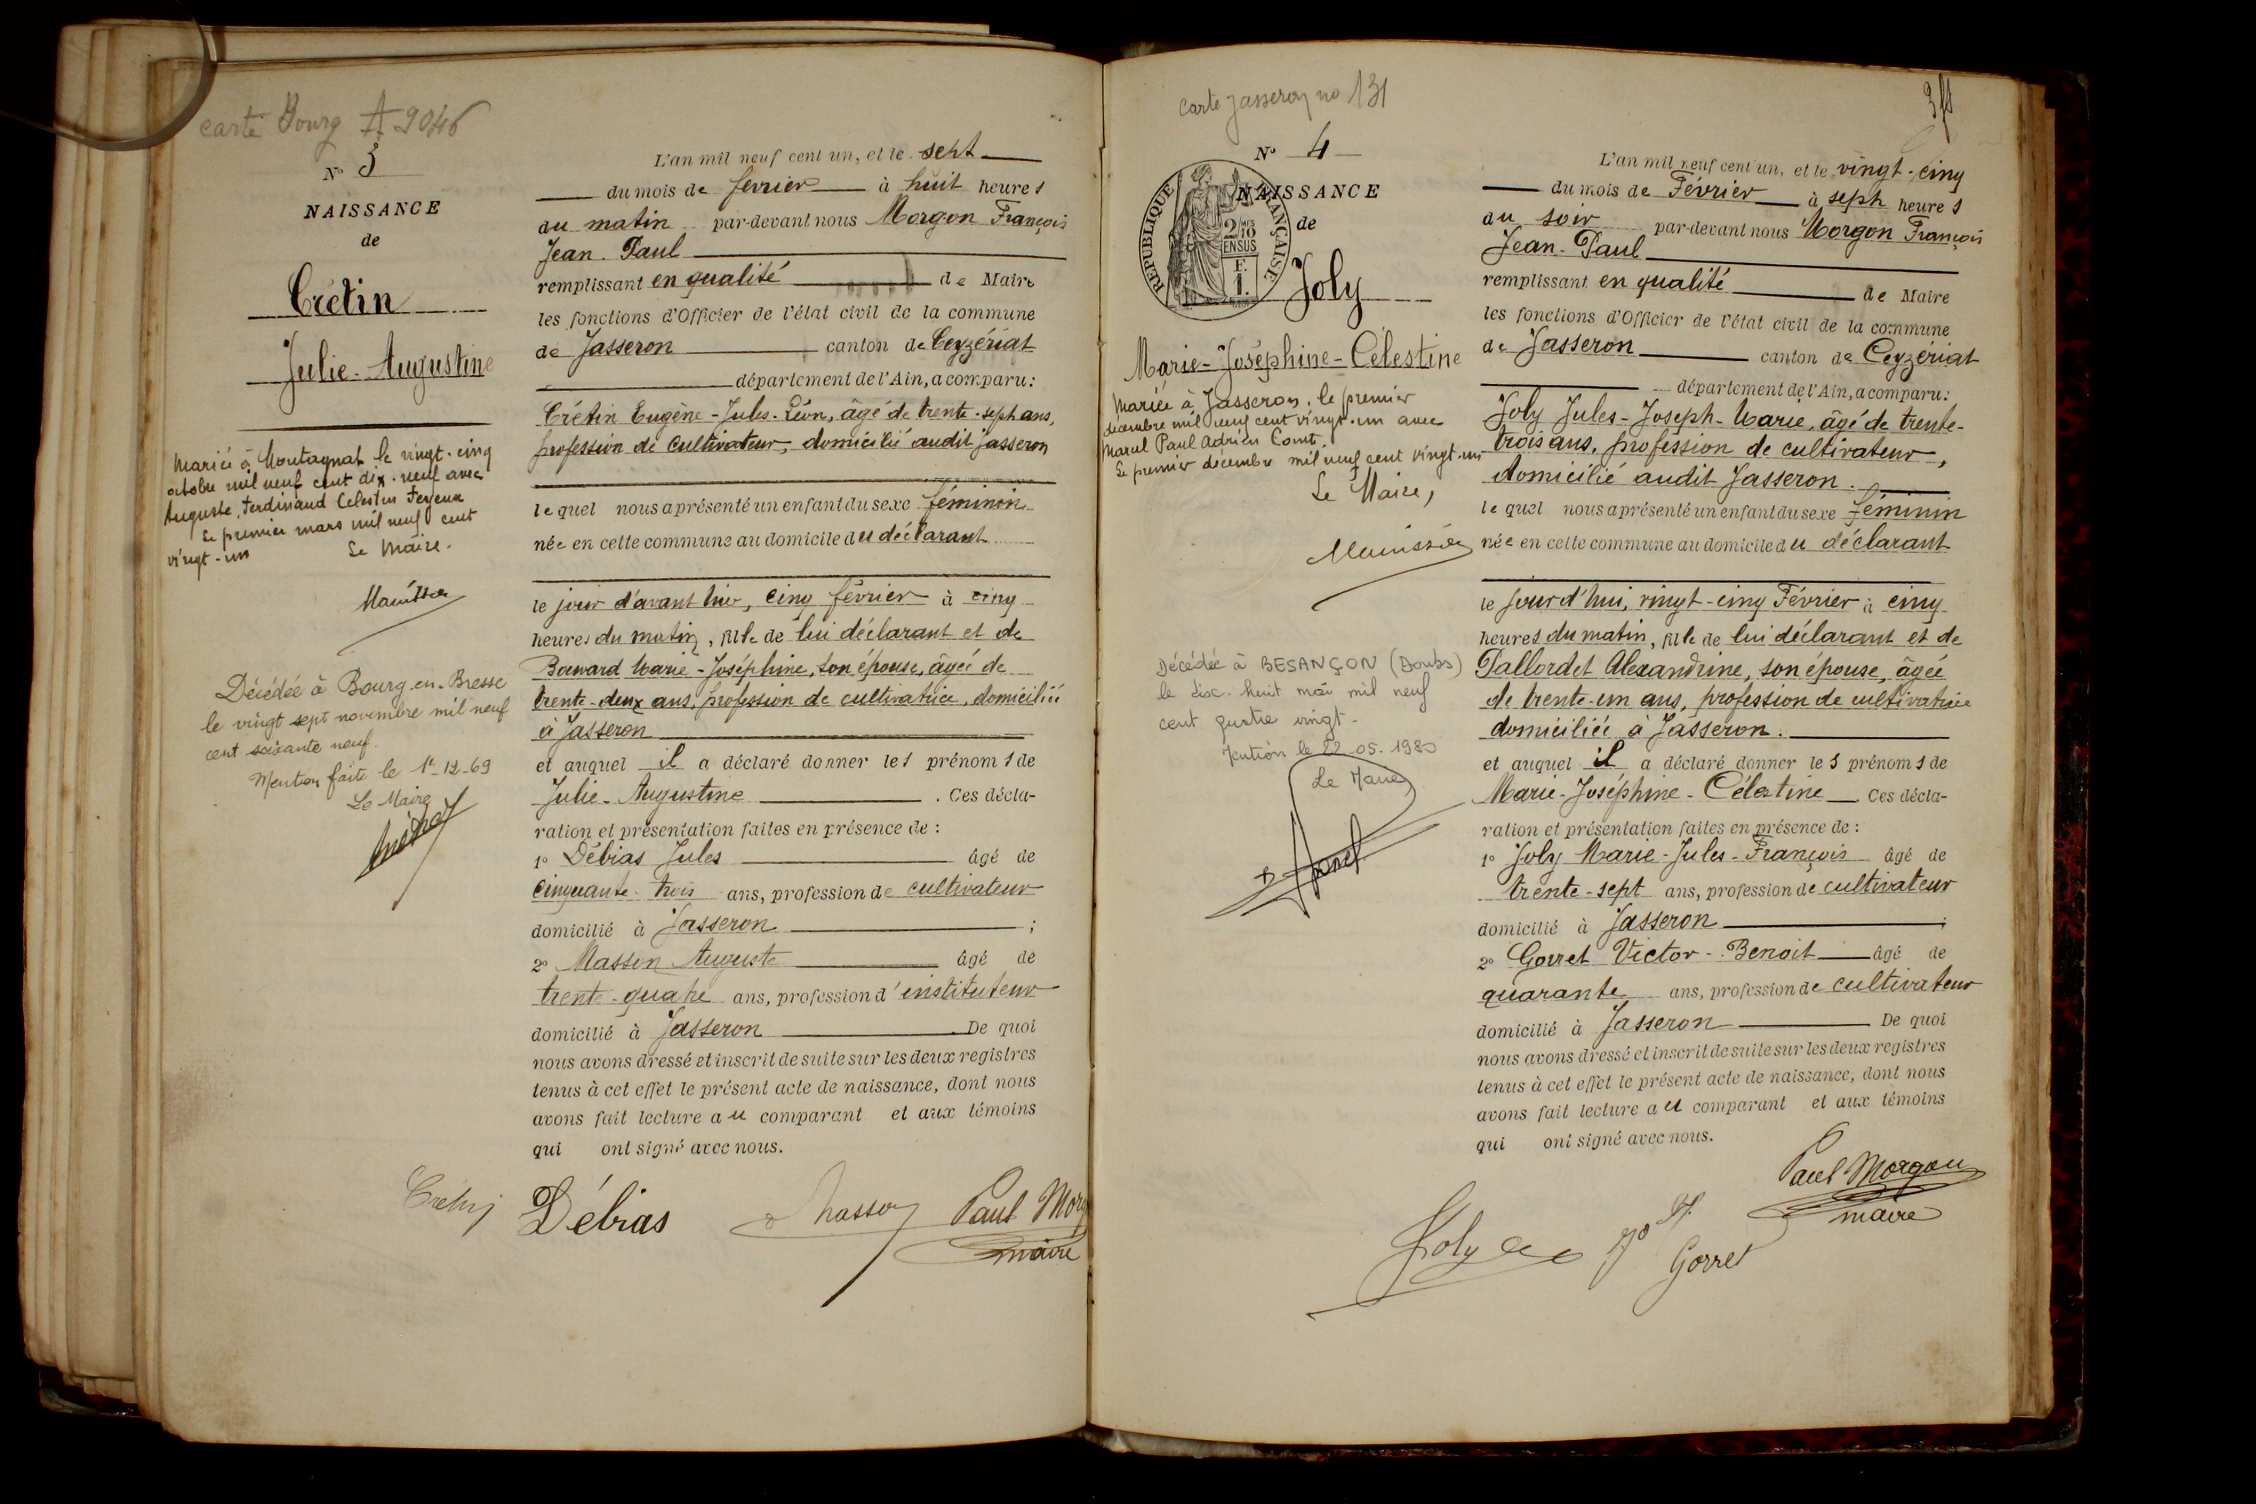 carte Bourg A 9046
N° 3
NAISSANCE
de
Crétin
Julie - Augustine
Mariée à Montagnat le vingt-cinq
octobre mil neuf cent dix-neuf avec
Auguste, Ferdinand Célestin
Le premier mars mil neuf cent
vingt-un Le Maire.
Décédée à Bourg-en-Bresse
le vingt sept novembre mil neuf
cent soixante neuf.
Mention faite le 1er-12-69
Le Maire
L'an mil neuf cent un, et le sept
du mois de février à huit heures
du matin par-devant nous Morgon François
Jean-Paul
remplissant en qualité de Maire
les fonctions d'Officier de l'état civil de la commune
de Jasseron canton de Ceyzériat
département de l'Ain, a comparu:
Crétin Eugène-Jules-Léon, âgé de trente-sept ans,
profession de cultivateur, domicilié audit Jasseron
lequel nous a présenté un enfant du sexe féminin
née en cette commune au domicile du déclarant
le jour d'avant hier, cinq février à cinq
heures du matin, fille de lui déclarant et de
Bernard Marie-Joséphine, son épouse, âgée de
trente-deux ans, profession de cultivatrice, domiciliée
à Jasseron
et auquel il a déclaré donner les prénoms de
Julie-Augustine. Ces décla-
ration et présentation faites en présence de:
1° Débias Jules âgé de
cinquante-trois ans, profession de cultivateur
domicilié à Jasseron;
2° Masson Auguste âgé de
trente-quatre ans, profession d'instituteur
domicilié à Jasseron De quoi
nous avons dressé et inscrit de suite sur les deux registres
tenus à cet effet le présent acte de naissance, dont nous
avons fait lecture au comparant et aux témoins
qui ont signé avec nous.
Crétin Débias Masson Paul Morg
maire
carte Jasseron no 131
N° 4
RÉPUBLIQUE FRANÇAISE
NAISSANCE
de
Joly
Marie-Joséphine-Célestine
Mariée à Jasseron, le premier
décembre mil neuf cent vingt-un avec
Marcel Paul Adrien Comt.
Le premier décembre mil neuf cent vingt-un
Le Maire,
Décédée à BESANÇON (Doubs)
le dix-huit mai mil neuf
cent quatre vingt-
Mention le 22-05-1980
Le Maire
L'an mil neuf cent un, et le vingt-cinq
du mois de Février à sept heures
du soir par-devant nous Morgon François
Jean-Paul
remplissant en qualité de Maire
les fonctions d'Officier de l'état civil de la commune
de Jasseron canton de Ceyzériat
département de l'Ain, a comparu:
Joly Jules-Joseph-Marie, âgé de trente-
trois ans, profession de cultivateur,
domicilié audit Jasseron.
lequel nous a présenté un enfant du sexe féminin
née en cette commune au domicile du déclarant
le jourd'hui, vingt-cinq Février à cinq
heures du matin, fille de lui déclarant et de
Pallordet Alexandrine, son épouse, âgée
de trente-un ans, profession de cultivatrice
domiciliée à Jasseron.
et auquel il a déclaré donner les prénoms de
Marie-Joséphine-Célestine. Ces décla-
ration et présentation faites en présence de:
1° Joly Marie-Jules-François âgé de
trente-sept ans, profession de cultivateur
domicilié à Jasseron;
2° Gorret Victor-Benoit âgé de
quarante ans, profession de cultivateur
domicilié à Jasseron De quoi
nous avons dressé et inscrit de suite sur les deux registres
tenus à cet effet le présent acte de naissance, dont nous
avons fait lecture au comparant et aux témoins
qui ont signé avec nous.
Paul Morgon
maire
Joly
Gorret